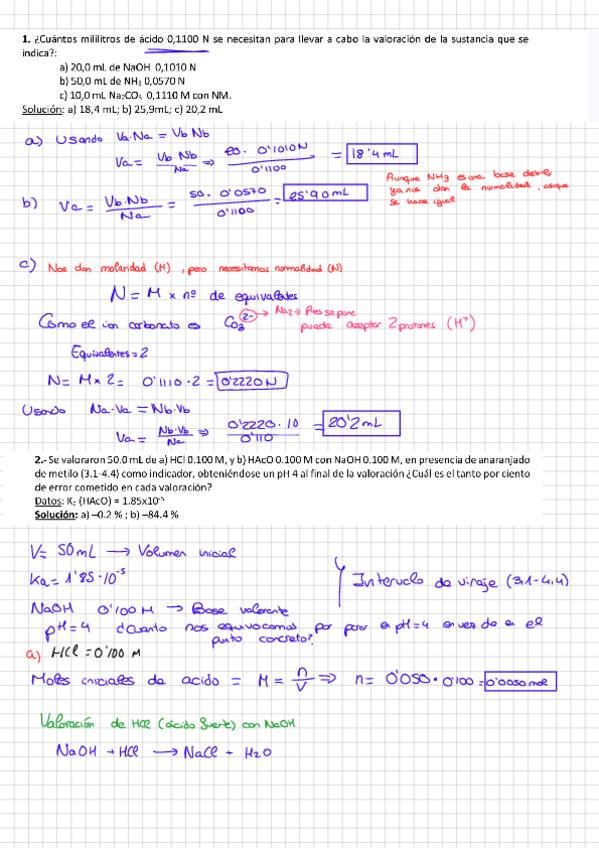 1. ¿Cuántos mililitros de ácido 0,1100 N se necesitan para llevar a cabo la valoración de la sustancia que se
indica?:
a) 20,0 mL de NaOH 0,1010 N
b) 50,0 mL de NH₃ 0,0570 N
c) 10,0 mL Na₂CO₃ 0,1110 M con NM.
Solución: a) 18,4 mL; b) 25,9mL; c) 20,2 mL
a) Usando Va·Na = Vb Nb
Va = Vb Nb / Na ⇒ 20. 0'1010N / 0'1100 = 18'4 mL
Aunque NH₃ es una base debil
ya nos dan la normalidad, asique
se hace igual
b) Va = Vb.Nb / Na = 50. 0'0570 / 0'1100 = 25'90 mL
c) Nos dan molaridad (M), pero necesitamos normalidad (N)
N = M x nº de equivalentes
Como el ion carbonato es CO₃ 2- → Na₂ → Pues se pone
puede aceptar 2 protones (H⁺)
Equivalentes = 2
N = M x 2 = 0'1110 · 2 = 0'2220 N
Usando Na·Va = Nb.Vb
Va = Nb·Vb / Na ⇒ 0'2220. 10 / 0'110 = 20'2 mL
2.- Se valoraron 50.0 mL de a) HCl 0.100 M, y b) HAcO 0.100 M con NaOH 0.100 M, en presencia de anaranjado
de metilo (3.1-4.4) como indicador, obteniéndose un pH 4 al final de la valoración ¿Cuál es el tanto por ciento
de error cometido en cada valoración?
Datos: K (HAcO) = 1.85x10⁻⁵
Solución: a) –0.2 % ; b) –84.4 %
V= 50 mL → Volumen inicial
Ka = 1'85 · 10⁻⁵
Intervalo de viraje (3.1 - 4,4)
NaOH 0'100 M → Base valorante
pH = 4 ¿Cuanto nos equivocamos por parar en pH=4 en vez de en el
punto concreto?
a) HCl = 0'100 M
Moles iniciales de acido = M = n / V ⇒ n = 0'050 · 0'100 = 0'0050 mol
Valoración de HCl (ácido fuerte) con NaOH
NaOH + HCl → NaCl + H₂O